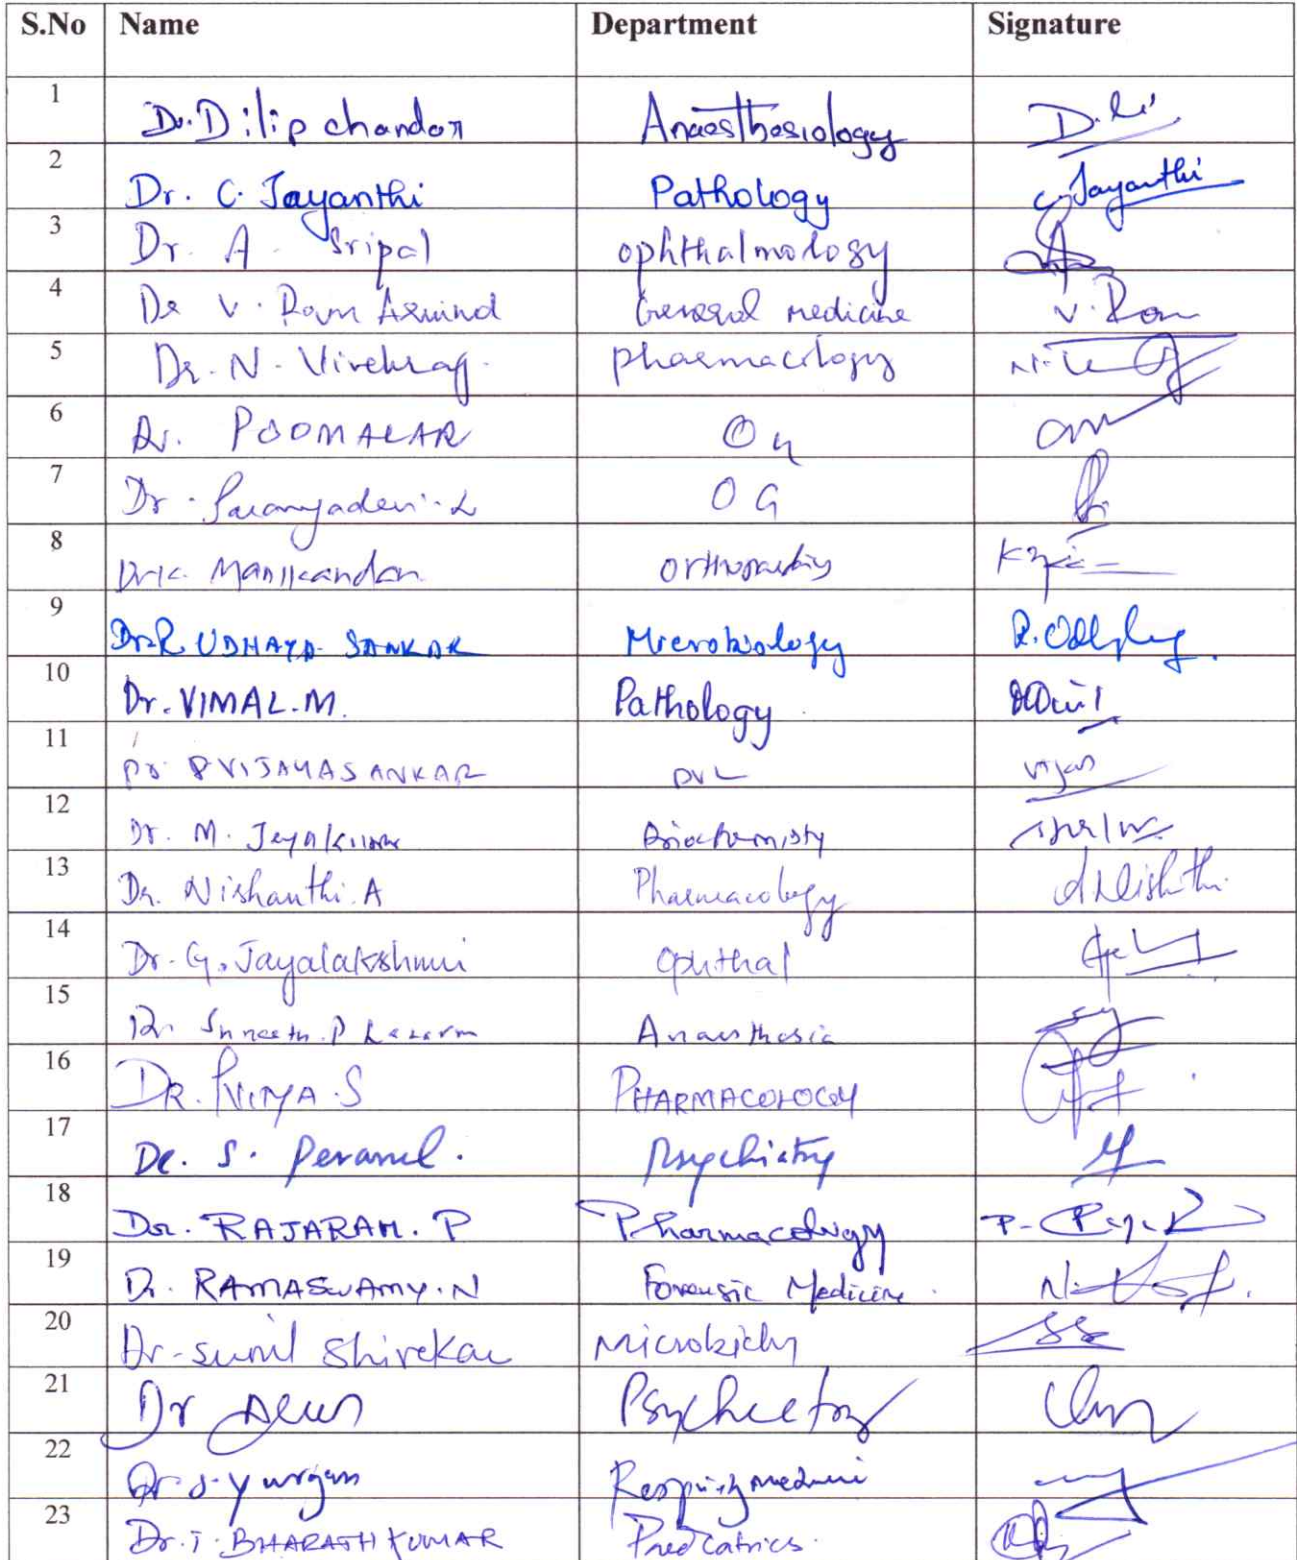 S.No Name Department Signature
1 Dr. Dilip chandar Anaesthesiology D. Li
2 Dr. C. Jayanthi Pathology C. Jayanthi
3 Dr. A. Sripal ophthalmology
4 Dr V. Ram Arvind General medicine V. Ram
5 Dr. N. Vivekraj. pharmacology
6 Dr. POOMALAR OG
7 Dr. Saranyadevi. L OG
8 Dr K. Manikandan orthopaedics
9 Dr. R UDHAYA SANKAR Microbiology
10 Dr. VIMAL. M. Pathology
11 Dr P VIJAYASANKAR DVL vijay
12 Dr. M. Jeyakumar Biochemistry
13 Dr. Nishanthi. A Pharmacology A Nishthi.
14 Dr. G. Jayalakshmi Ophthal
15 Dr Anaesthesia
16 DR. S PHARMACOLOGY
17 Dr. S. Perumal. Psychiatry
18 Dr. RAJARAM. P Pharmacology
19 Dr. RAMASWAMY. N Forensic Medicine.
20 Dr. Sunil Shivekar Microbiology SS
21 Dr Psychiatry
22 Dr. S. Respiratory medicine
23 Dr. T. BHARATH KUMAR Paediatrics.